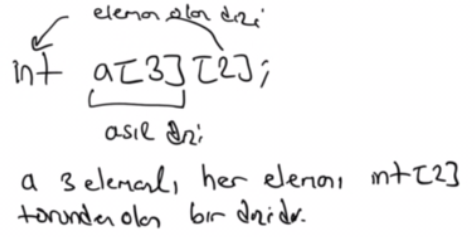 eleman olan dizi
int a[3][2];
asıl dizi
a 3 elemanlı, her elemanı int[2]
türünden olan bir dizidir.